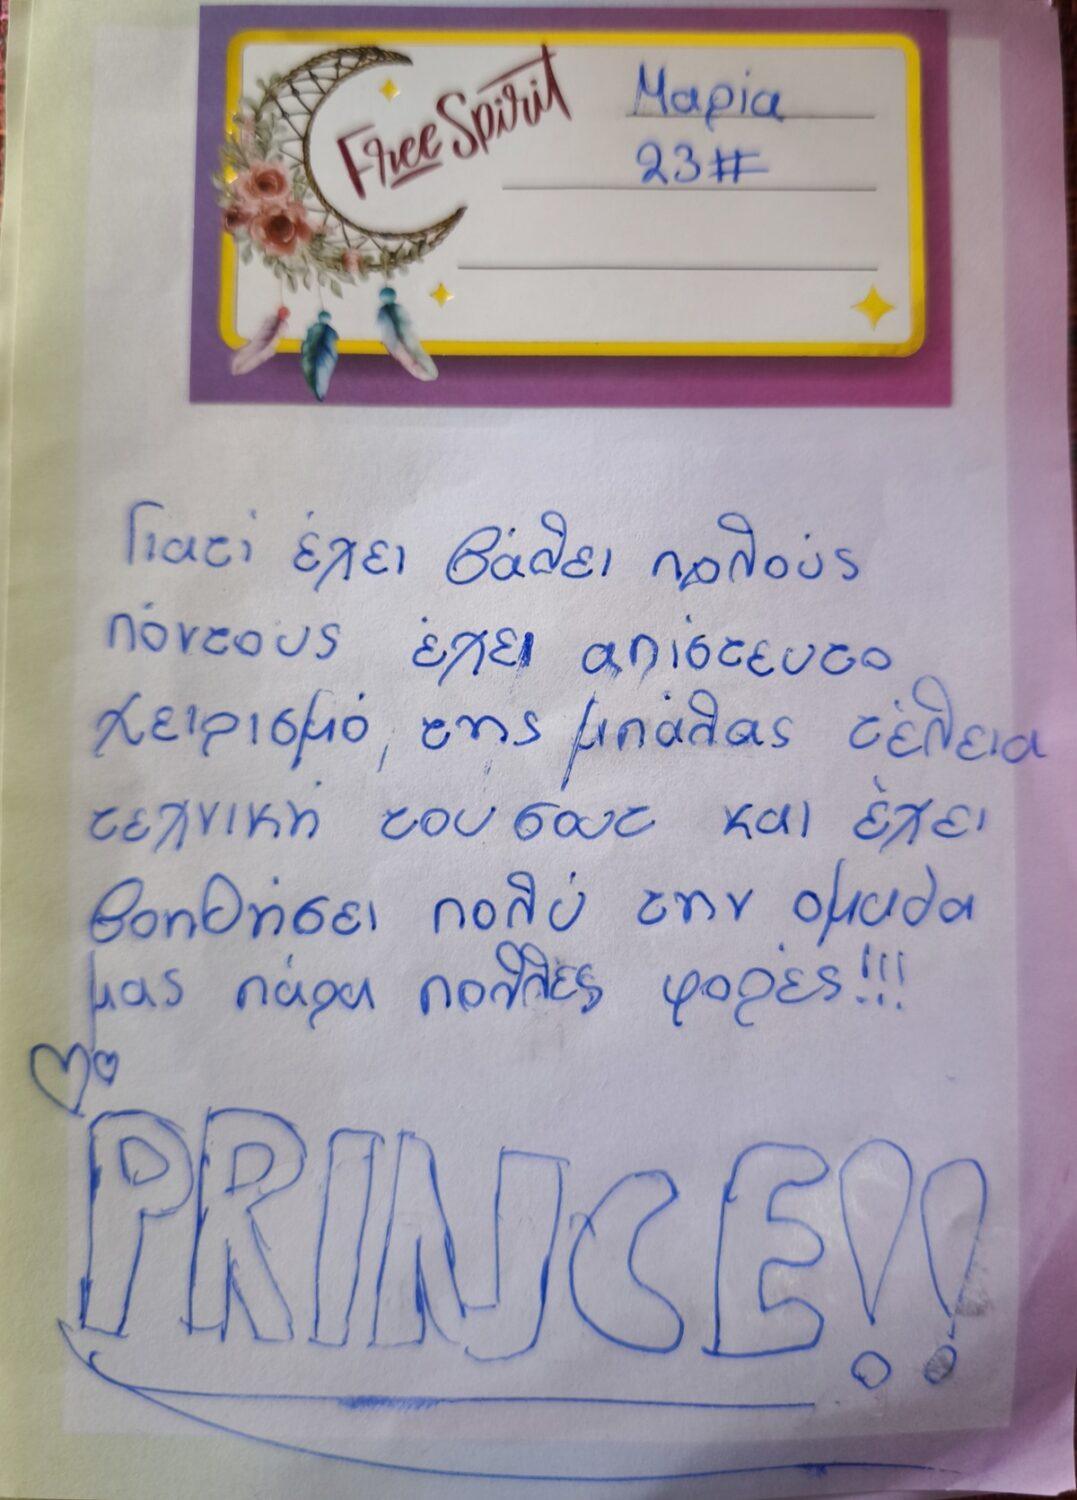 Free Spirit
Μαρία
23#
Γιατί έχει βάλει πολούς
πόντους έχει απίστευτο
χειρισμό, της μπάλας τέλεια
τεχνική του σουτ και έχει
βοηθήσει πολύ την ομαδα
μας πάρα πολλές φορές!!!
PRINCE!!